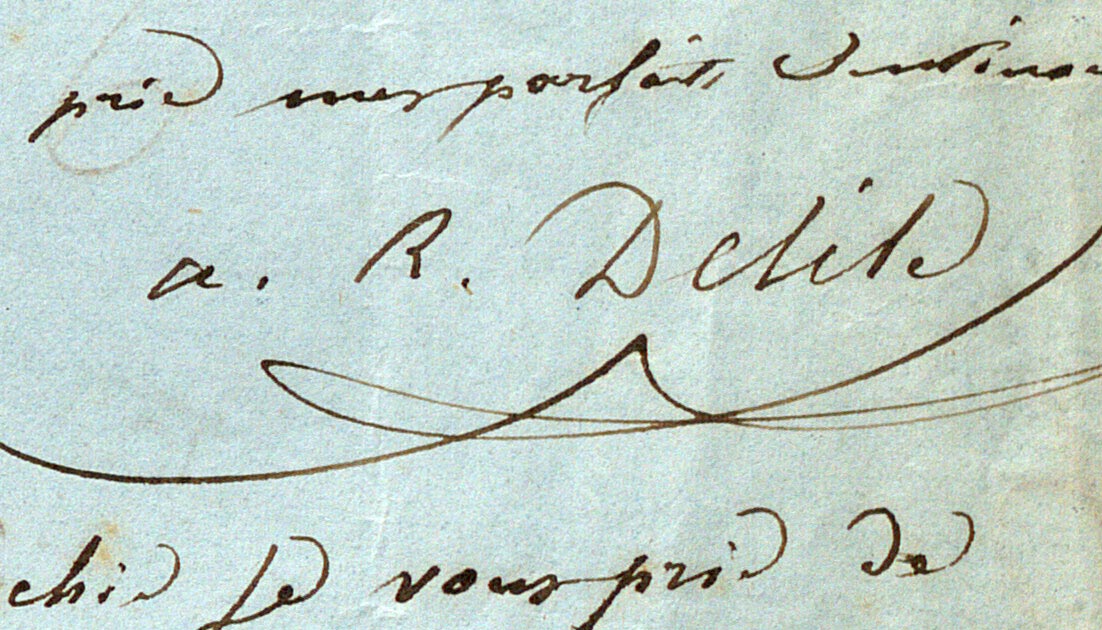 prie mes parfaits Sentimen
a. R. Delile
chie je vous prie de